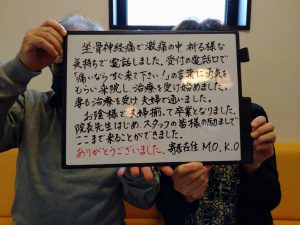 坐骨神経痛で激痛の中 祈る様な
気持ちで電話しました。受付の電話口で
「痛いならすぐ来て下さい!」の言葉に勇気を
もらい来院し治療を受け始めました。
妻も治療を受け夫婦で通いました。
お陰様で夫婦揃って卒業となりました。
院長先生はじめ、スタッフの皆様の励ましで
ここまで来ることができました。
ありがとうございました。 寄居在住 M.O, K.O